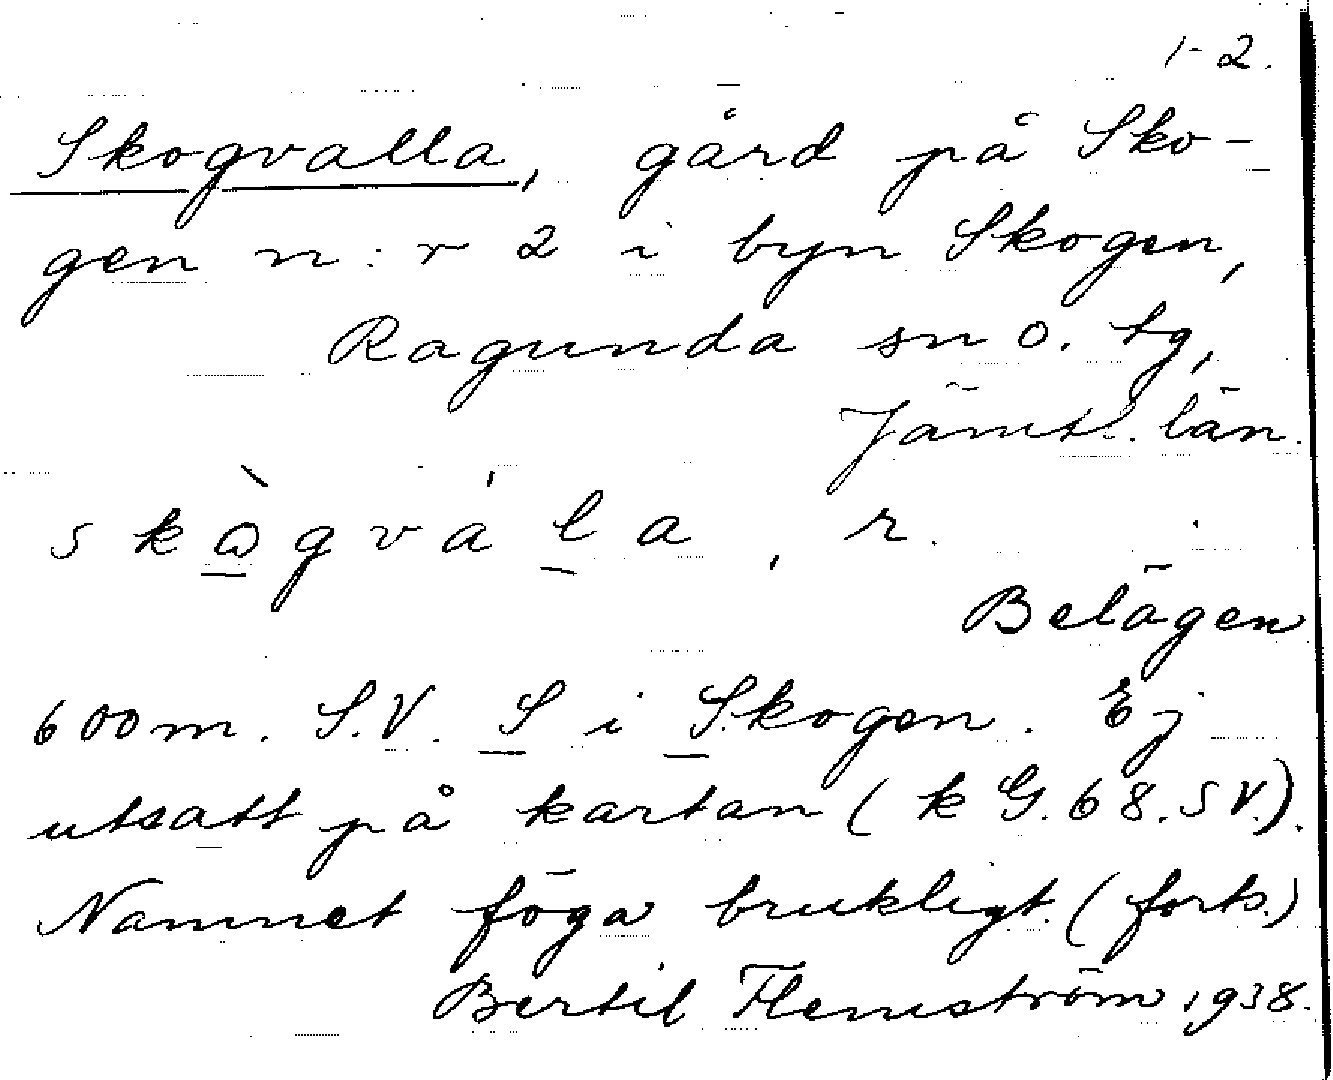 1-2.
Skogvalla, gård på Sko-
gen n:r 2 i byn Skogen,
Ragunda sn o. tg,
Jämtl. län.
skògvála, r.
Belägen
600m. S.V. S i Skogen. Ej
utsatt på kartan (k G. 68. SV.).
Namnet föga brukligt. (forts.)
Bertil Flemström 1938.